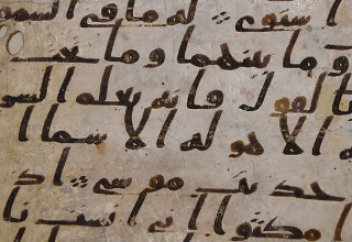 استوى له ما في السمو
وما بينهما وما تحت
بالقول فانه يعلم السر
الا هو له الاسما ا
حديث موسى اذ
ا مكثوا اني انست نا